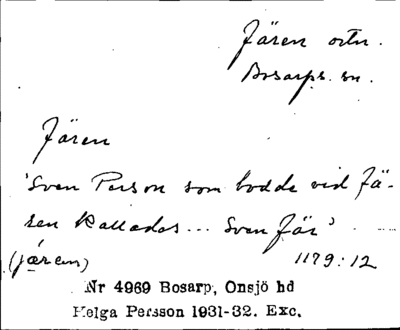 Jären ortn.
Bosarps sn.
Jären
'Sven Person som bodde vid Jä-
ren kallades... Sven Jär'
(jären) 1179:12
Nr 4969 Bosarp, Onsjö hd
Helga Persson 1931-32. Exc.